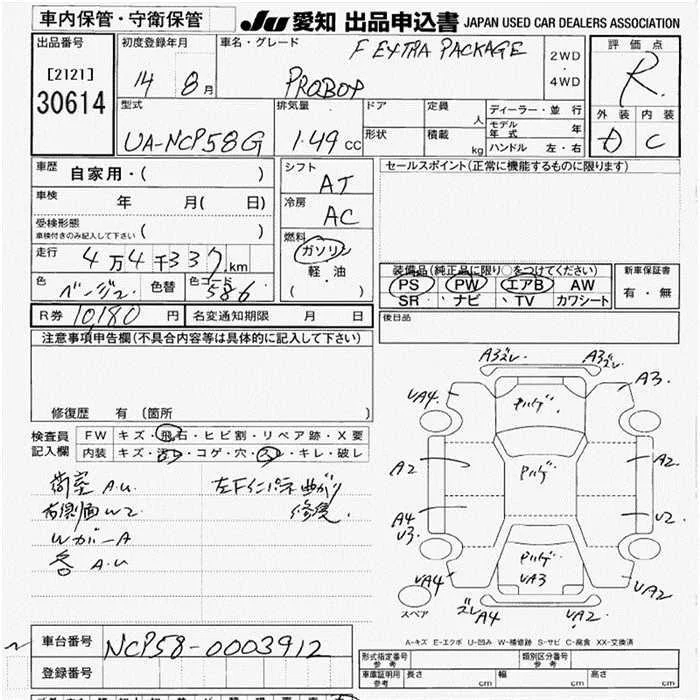 車内保管・守衛保管
JU 愛知 出品申込書 JAPAN USED CAR DEALERS ASSOCIATION
出品番号
[2121]
30614
初度登録年月
14 8月
車名・グレード
F EXTRA PACKAGE
PROBOX
2WD
・
4WD
評価点
R
外装 内装
D C
型式
UA-NCP58G
排気量
1.49 cc
ドア
定員
人
形状
積載
kg
ディーラー・並行
モデル年式 年
ハンドル 左・右
車歴
自家用・( )
車検
年 月( 日)
受検形態
車検付きのみ記入して下さい ( )
走行
4万4千337km
色
ベージュ
色替
色コード
586
シフト
AT
冷房
AC
燃料
ガソリン
軽油
( ・ )
セールスポイント(正常に機能するものに限ります)
装備品(純正品に限り○をつけてください)
PS PW エアB AW
SR ナビ TV カワシート
新車保証書
有・無
後日品
R券 10,180 円
名変通知期限 月 日
注意事項申告欄(不具合内容等は具体的に記入して下さい)
修復歴 有 (箇所 )
検査員
記入欄
FW キズ・飛石・ヒビ割・リペア跡・X要
内装 キズ・汚レ・コゲ・穴・スレ・キレ・破レ
荷室 A.U
右側面 W2
WガーA
各 A.U
左Fインパネ曲がり
修復
A3ズレ
A3ズレ
UA4
A3
A2
A2
A4
U3
U2
UA4
UA2
UA3
ズレA4
UA2
スペア
A-キズ E-エクボ U-凹み W-補修跡 S-サビ C-腐食 XX-交換済
車台番号
NCP58-0003912
登録番号
形式指定番号
参考
類別区分番号
参考
車庫証明用
参考
長さ cm
幅 cm
高さ cm